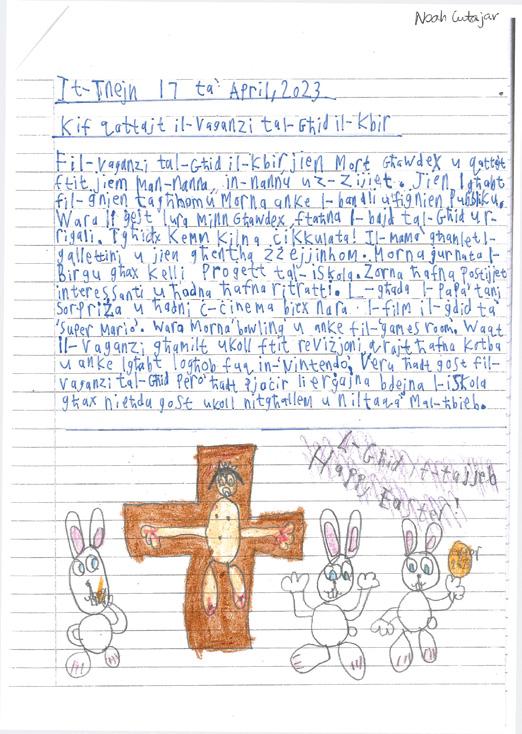 Noah Cutajar
It-Tnejn 17 ta' April, 2023
Kif qattajt il-Vaganzi tal-Għid il-Kbir
Fil-vaganzi tal-Għid il-Kbir jien Mort Għawdex u qattajt
ftit jiem Man-nanna, in-nannu u z-zijiet. Jien lgħabt
fil-ġnien tagħhom u Morna anke l-bandli u ġnien Pubbliku.
Wara li ġejt lura Minn Għawdex, ftaħna l-bajd tal-Għid u r-
rigali. Tgħidx Kemm Kilna ċikkulata! Il-mama għamlet l-
gallettini u jien għentha żżejjinhom. Morna ġurnata l-
Birgu għax Kelli Proġett tal-iskola. Żorna ħafna postijiet
interessanti u ħadna ħafna ritratti. L-għada l-Papa' tani
Sorpriża u ħadni ċ-ċinema biex nara l-film il-ġdid ta'
'Super Mario'. Wara Morna bowling u anke fil-games room. Waqt
il-vaganzi għamilt ukoll ftit reviżjoni, qrajt ħafna Kotba
u anke lgħabt logħob fuq in-Nintendo. Vera ħadt gost fil-
vaganzi tal-Għid Però ħadt pjaċir li erġajna bdejna l-iskola
għax nieħdu gost ukoll nitgħallem u niltaqa' Mal-ħbieb.
L-Għid it-tajjeb
Happy Easter!